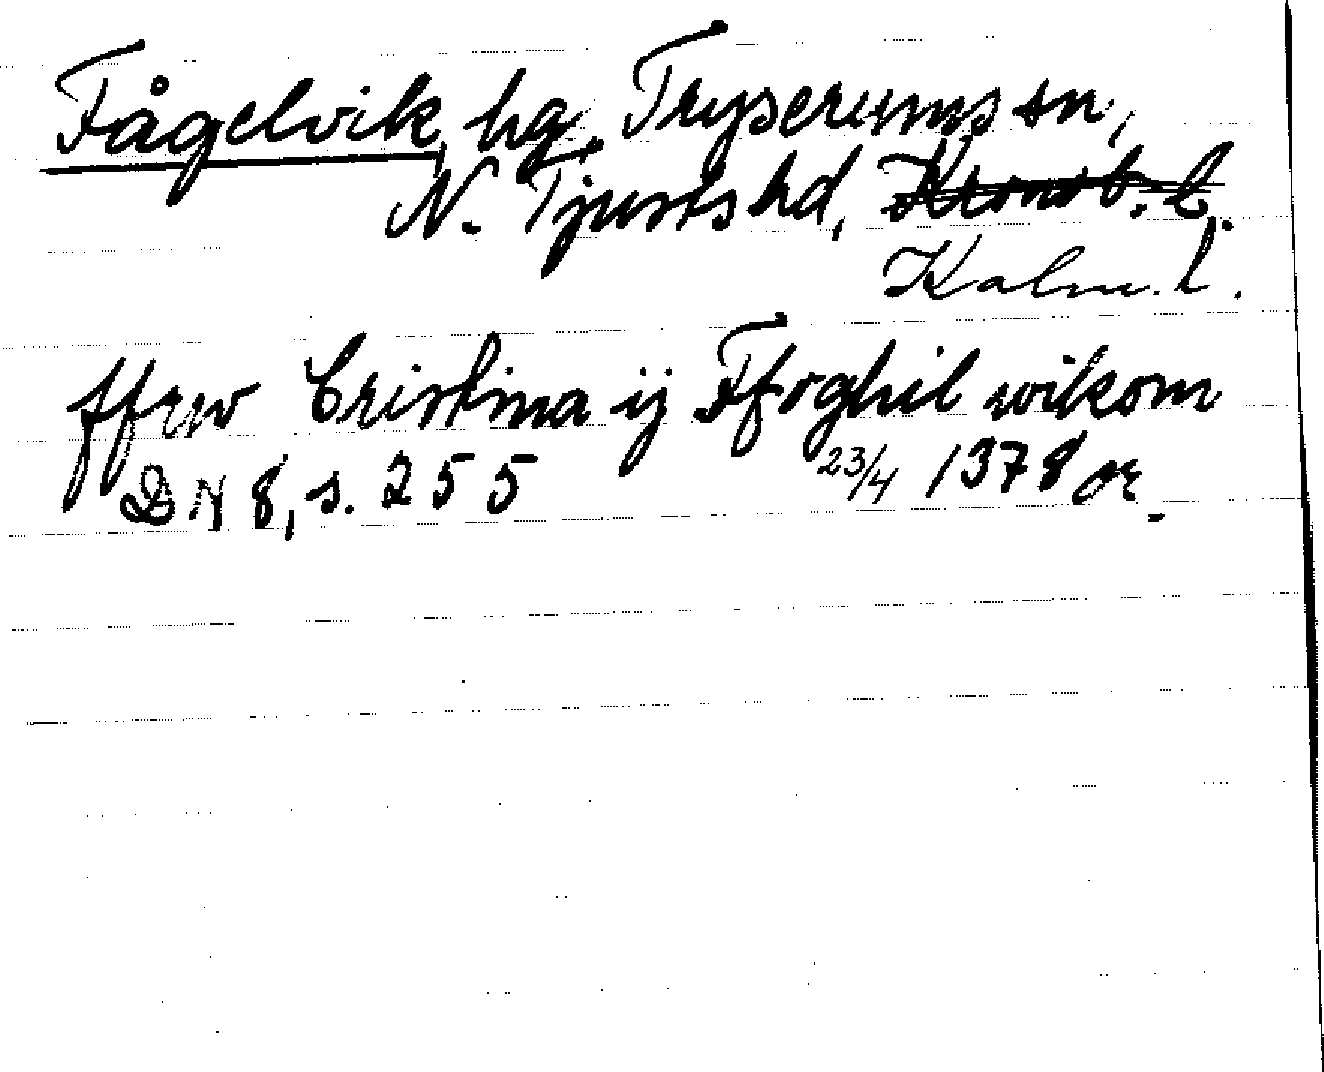 Fågelvik, hg, Tryserums sn,
N. Tjusts hd, Kronob. l.
Kalm. l.
ffrw Cristina ij Ffoghil wikom
DN 8, s. 255 23/4 1378 or.